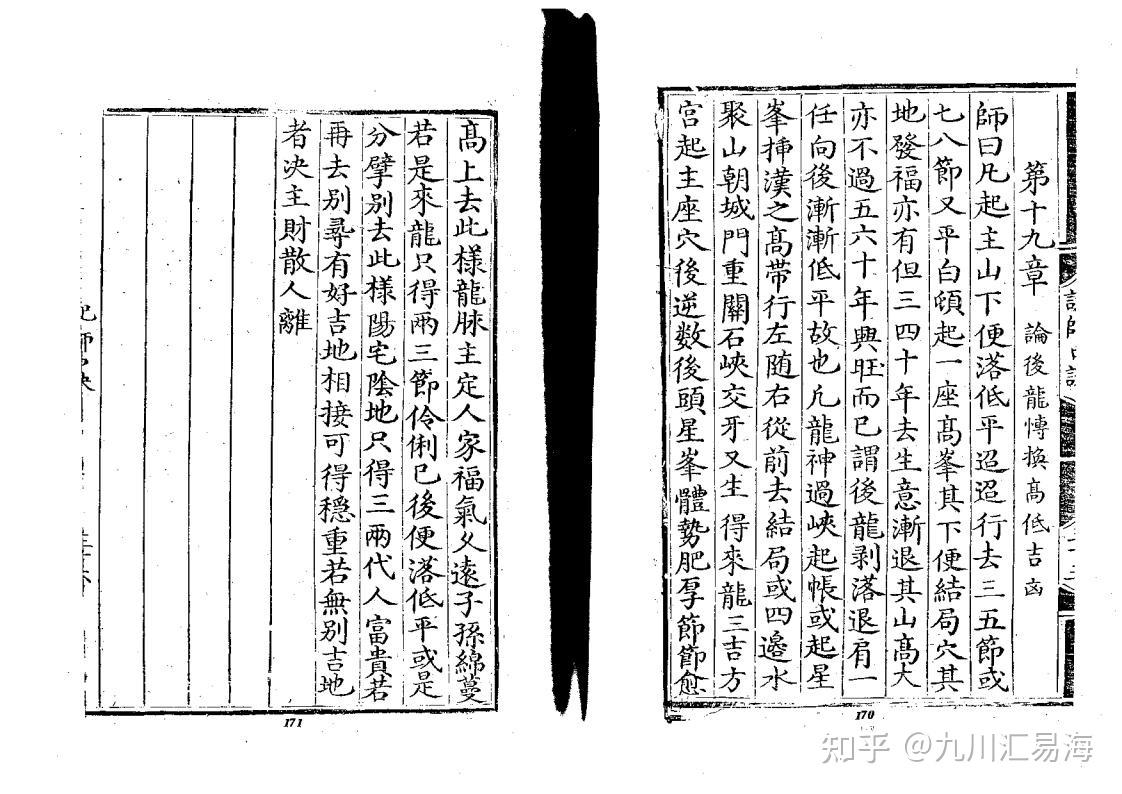 第十九章 論後龍愽換高低吉凶
師曰凡起主山下便落低平迢迢行去三五節或
七八節又平白傾起一座高峯其下便結局穴其
地發福亦有但三四十年去生意漸退其山高大
亦不過五六十年興旺而已謂後龍剥落退肩一
任向後漸漸低平故也凢龍神過峽起帳或起星
峯揷漢之高帶行左随右從前去結局或四邉水
聚山朝城門重關石峽交牙又生 得來龍三吉方
宫起主座穴後逆数後頭星峯體勢肥厚節節愈
高上去此様龍脉主定人家福氣乆遠子孫綿蔓
若是來龍只得兩三節伶俐已後便落低平或是
分擘别去此様陽宅陰地只得三兩代人富貴若
再去别尋有好吉地相接可得穩重若無别吉地
者决主財散人離
171
170
知乎 @九川汇易海